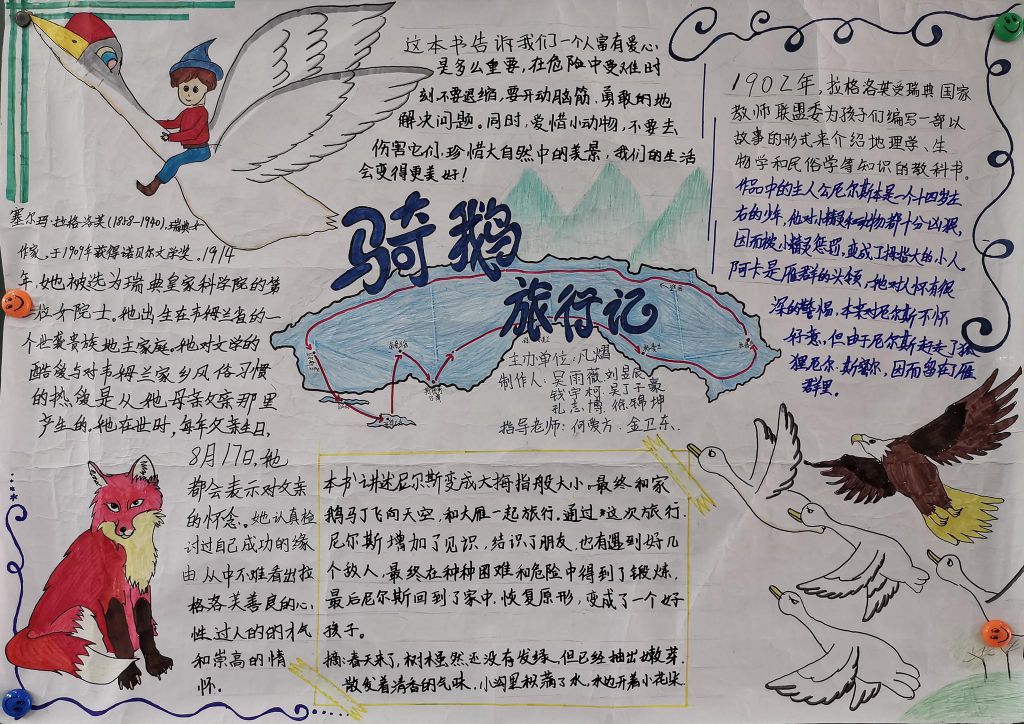 这本书告诉我们一个人富有爱心
是多么重要,在危险中受难时
刻不要退缩,要开动脑筋,勇敢的地
解决问题。同时,爱惜小动物,不要去
伤害它们,珍惜大自然中的美景,我们的生活
会变得更美好!
1902年,拉格洛芙受瑞典国家
教师联盟委为孩子们编写一部以
故事的形式来介绍地理学、生
物学和民俗学等知识的教科书。
作品中的主人公尼尔斯本是一个十四岁左
右的少年,他对小精灵和动物都十分凶狠,
因而被小精灵惩罚,变成了拇指大的小人
阿卡是雁群的头领,她对人怀有很
深的警惕,本来对尼尔斯不怀
好意,但由于尼尔斯赶走了狐
狸尼尔·斯密尔,因而留在了雁
群里.
塞尔玛·拉格洛芙(1858-1940),瑞典女
作家。于1909年获得诺贝尔文学奖。1914
年,她被选为瑞典皇家科学院的第
一位女院士。她出生在韦姆兰省的一
个世袭贵族地主家庭。她对文学的
酷爱与对韦姆兰家乡风俗习惯
的热爱是从她母亲父亲那里
产生的,她在世时,每年父亲生日,
8月17日,她
都会表示对父亲
的怀念。她认真检
讨过自己成功的缘
由,从中不难看出拉
格洛芙善良的心
性,过人的的才气
和崇高的情
怀。
骑鹅
旅行记
主办单位:凡熠
制作人:吴雨薇.刘昱辰
钱宇柯.吴丁子豪
孔志博.徐锦坤
指导老师:何爱方.金卫东.
本书讲述尼尔斯变成大拇指般大小,最终和家
鹅马丁飞向天空,和大雁一起旅行。通过这次旅行.
尼尔斯增加了见识,结识了朋友,也有遇到好几
个敌人,最终在种种困难和危险中得到了锻炼,
最后尼尔斯回到了家中,恢复原形,变成了一个好
孩子。
摘:春天来了,树木虽然还没有发绿,但已经抽出嫩芽.
散发着清香的气味.小沟里积满了水,水边开着小花朵.